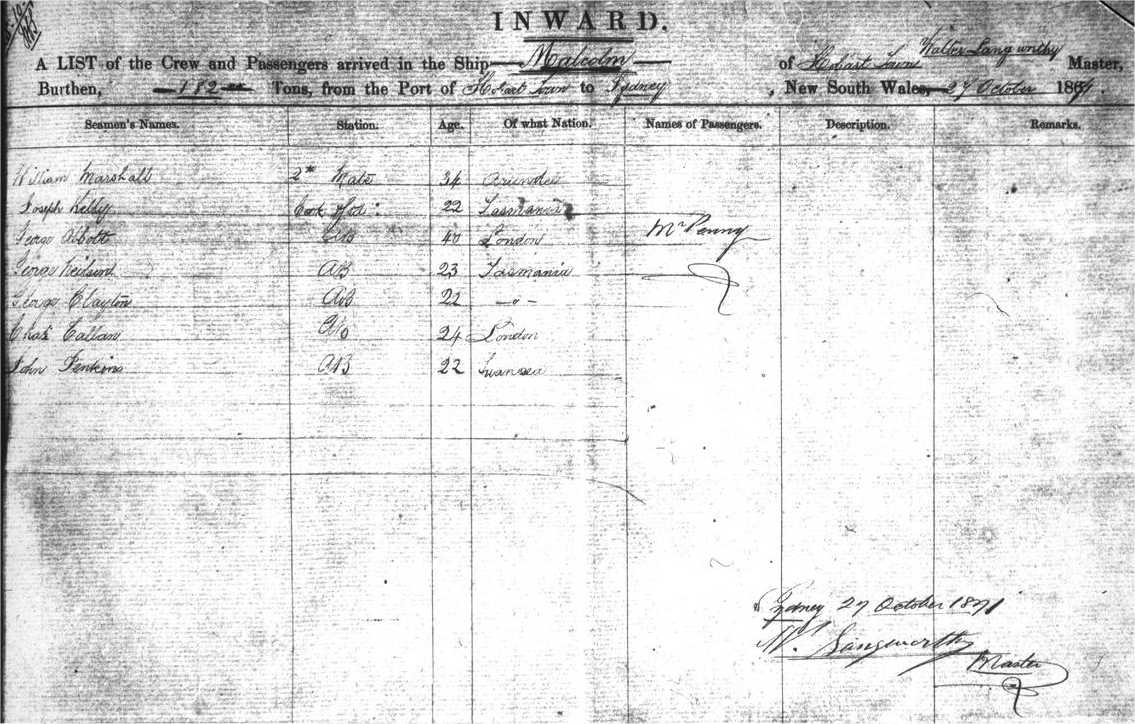 INWARD.
A LIST of the Crew and Passengers arrived in the Ship Malcolm of Hobart Town Walter Langworthy Master,
Burthen, 182 Tons, from the Port of Hobart Town to Sydney, New South Wales, 27 October 1871.
Seamen's Names. Station. Age. Of what Nation. Names of Passengers. Description. Remarks.
William Marshall 2d Mate 34 Arundel
Joseph Kelly Cook 22 Tasmania
George Abbott AB 40 London Mr Penny
George Neilson AB 23 Tasmania
George Clayton AB 22 — o —
Chas Callan 24 London
John Jenkins AB 22 Swansea
Sydney 27 October 1871
W. Langworthy
Master